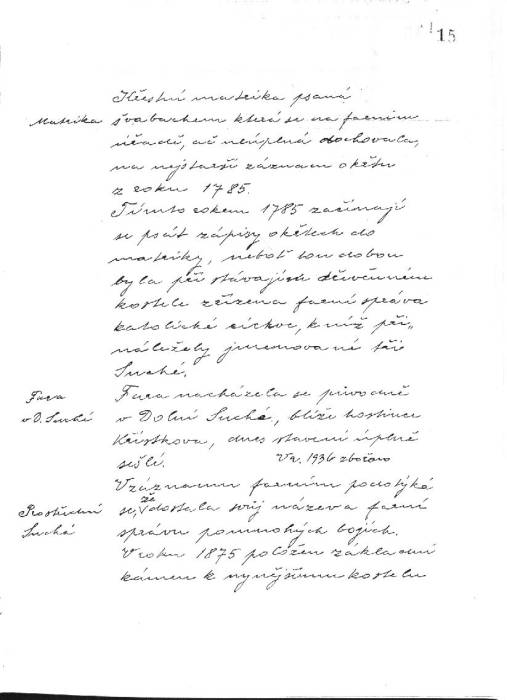 15
Křestní matrika psaná
Matrika
švabachem která se na farním
úřadě, ač neúplná dochovala,
má nejstarší záznam o křtu
z roku 1785.
Tímto rokem 1785 začínají
se psát zápisy o křtech do
matriky, neboť tou dobou
byla při stávajícím dřevěném
kostele zřízena farní správa
katolické církve, k níž při„
náležely jmenované tři
Suché.
Fara
v D. Suché
Fara nacházela se původně
v Dolní Suché, blíže hostince
Křístkova, dnes stavení úplně
sešlé. V r. 1936 zbořeno
V záznamu farním podotýká
Prostřední
Suchá
se, že dostala svůj název a farní
správu po mnohých bojích.
V roku 1875 položen základní
kámen k nynějšímu kostelu